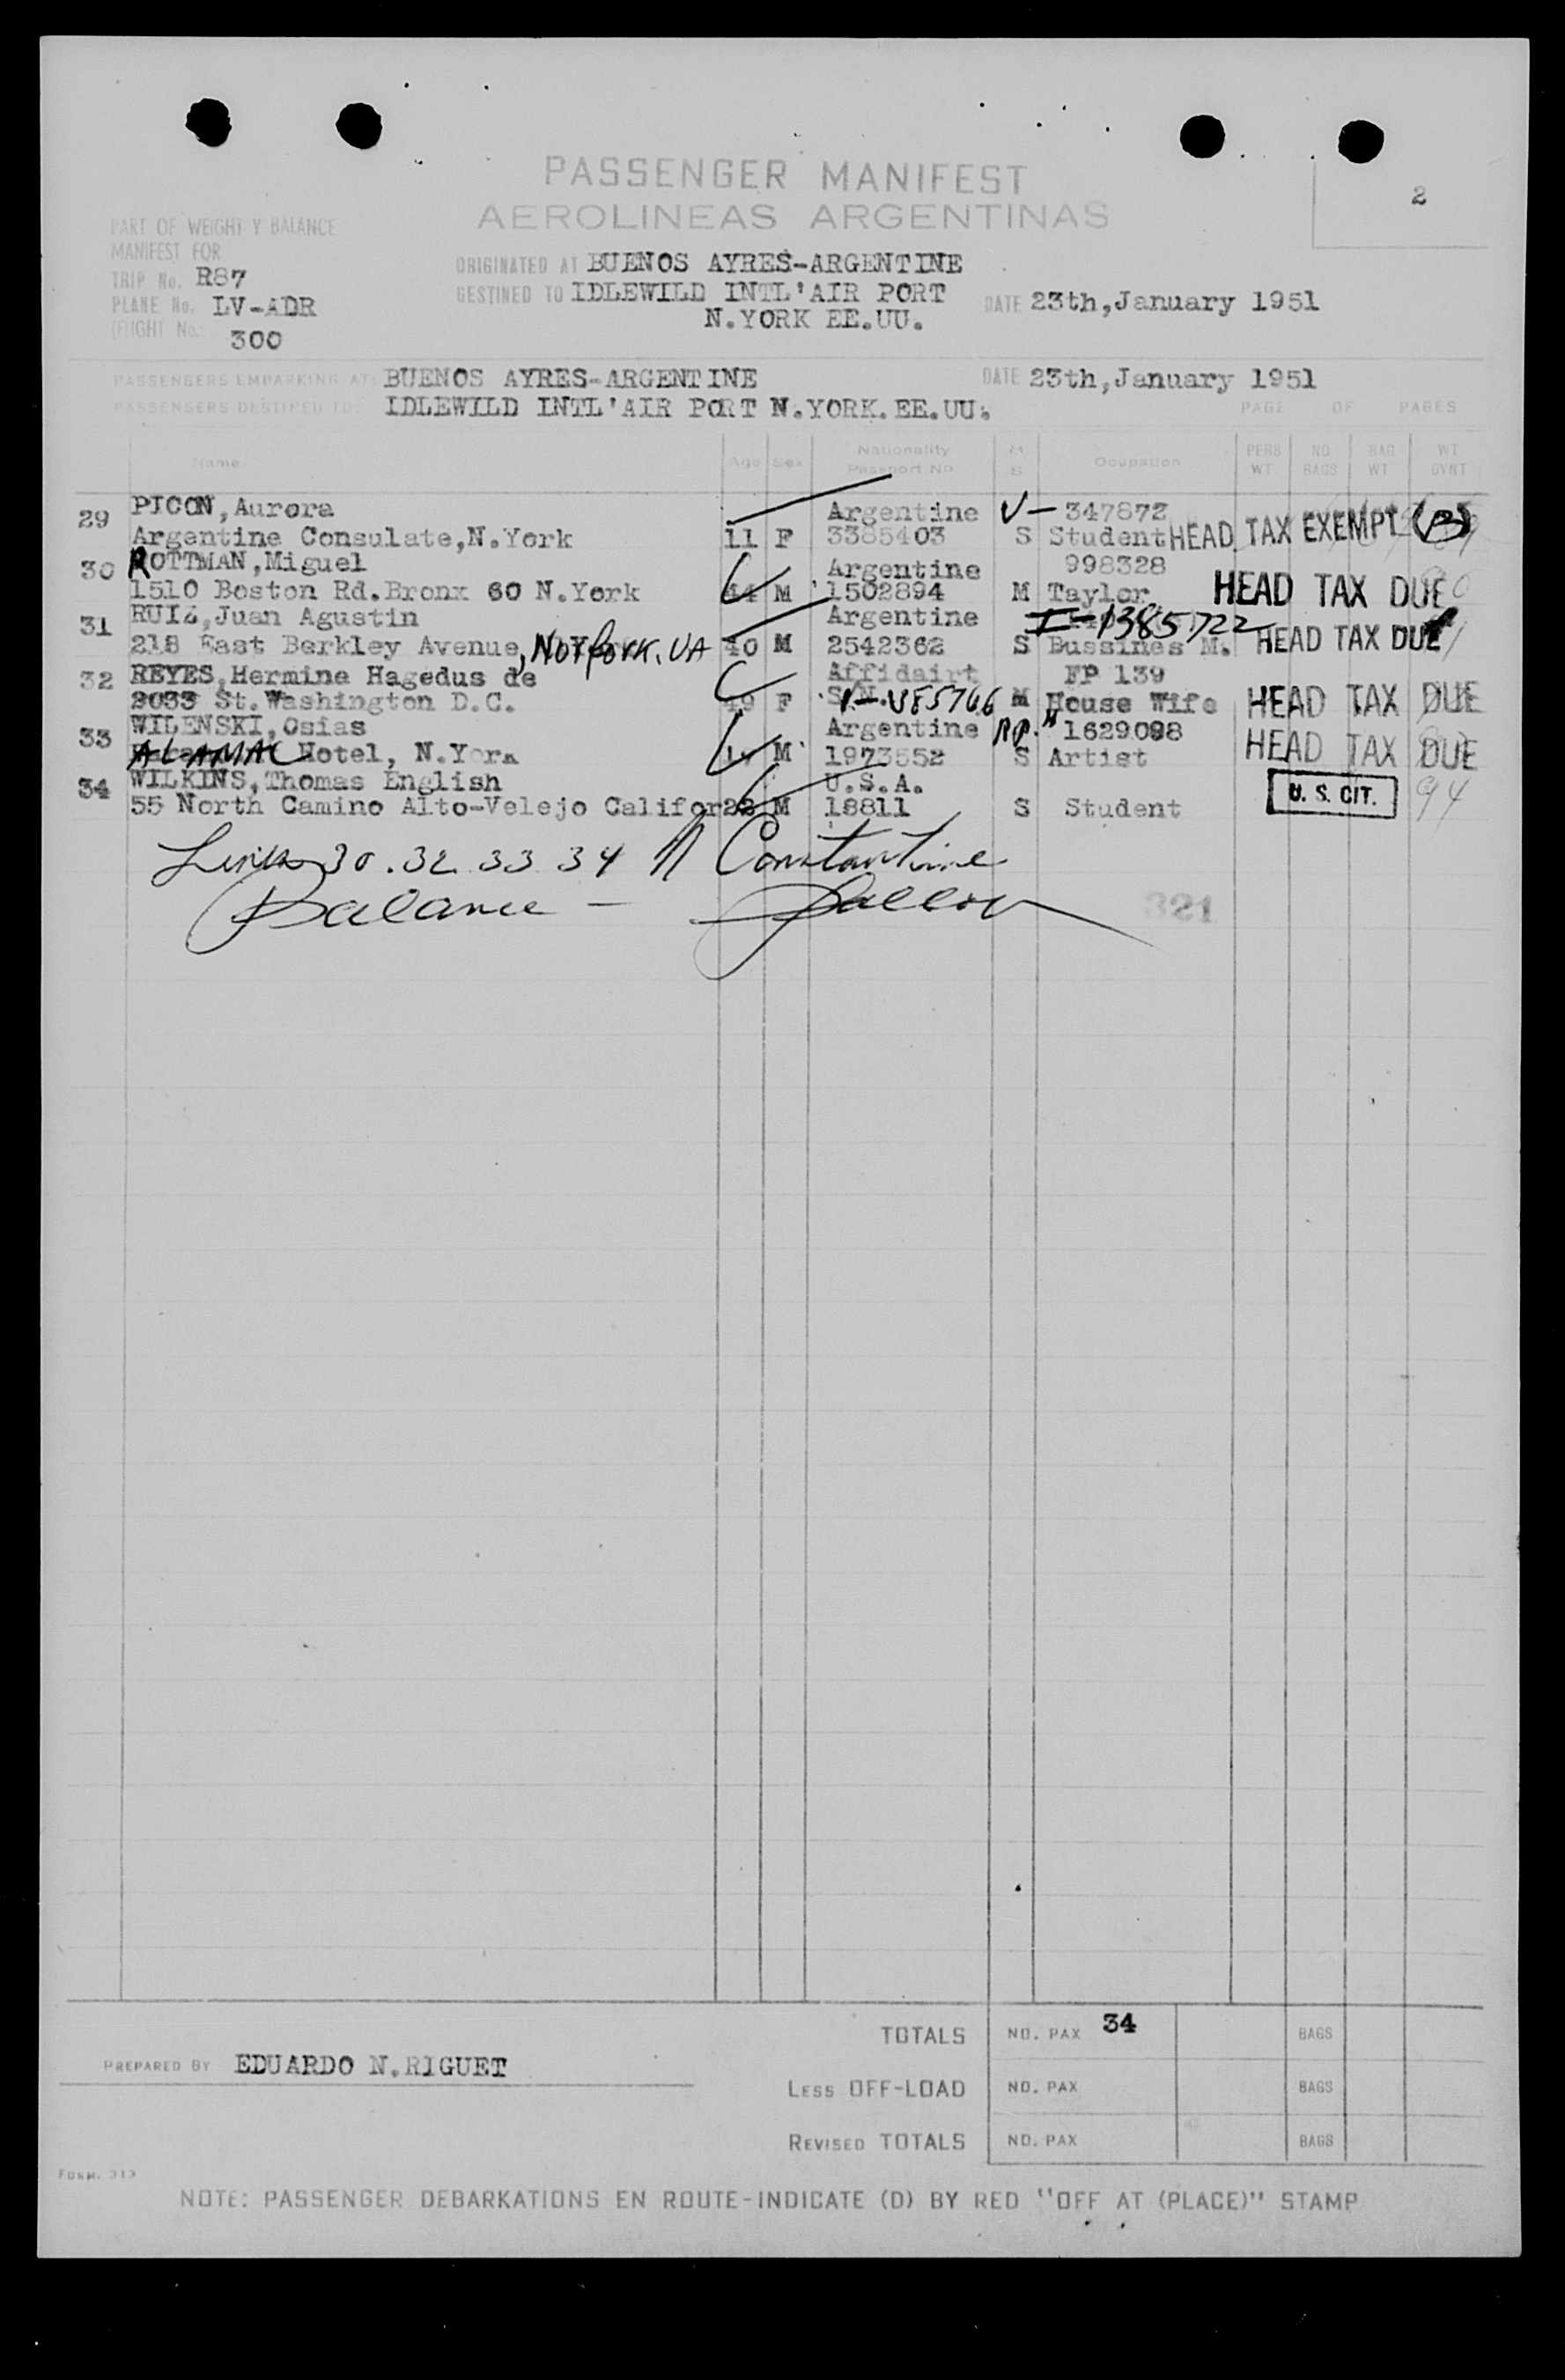 PASSENGER MANIFEST
AEROLINEAS ARGENTINAS
2
PART OF WEIGHT Y BALANCE
MANIFEST FOR
TRIP No. R87
PLANE No. LV-ADR
(FIGHT No. 300
ORIGINATED AT BUENOS AYRES-ARGENTINE
GESTINED TO IDLEWILD INTL'AIR PORT
N.YORK EE.UU.
DATE 23th,January 1951
PASSENGERS EMBARKING AT: BUENOS AYRES-ARGENTINE
DATE 23th,January 1951
PASSENGERS DESTINED TO: IDLEWILD INTL'AIR PORT N.YORK.EE.UU.
PAGE OF PAGES
Name Age Sex Nationality Passport No M S Ocupation PERS WT NO BAGS BAG WT WT
29 PICON,Aurora Argentine V- 347872
Argentine Consulate,N.York 11 F 3385403 S Student HEAD TAX EXEMPT
30 ROTTMAN,Miguel Argentine 998328
1510 Boston Rd.Bronx 60 N.York 44 M 1502894 M Taylor HEAD TAX DUE
31 RUIZ,Juan Agustin Argentine I-1385722
218 East Berkley Avenue, Norfork, VA 40 M 2542362 S Bussines M. HEAD TAX DUE
32 REYES,Hermine Hagedus de Affidairt FP 139
2033 St.Washington D.C. 49 F V-485766 M House Wife HEAD TAX DUE
33 WILENSKI,Osias Argentine 1629098
ALAMAC Hotel, N.York M 1973552 S Artist HEAD TAX DUE
34 WILKINS,Thomas English U.S.A.
55 North Camino Alto-Velejo Califor 22 M 18811 S Student U. S. CIT. 94
Lines 30. 32 33 34 Constantine
Balance -
321
TOTALS NO. PAX 34 BAGS
PREPARED BY EDUARDO N.RIGUET
LESS OFF-LOAD NO. PAX BAGS
REVISED TOTALS NO. PAX BAGS
FORM. 313
NOTE: PASSENGER DEBARKATIONS EN ROUTE-INDICATE (D) BY RED "OFF AT (PLACE)" STAMP